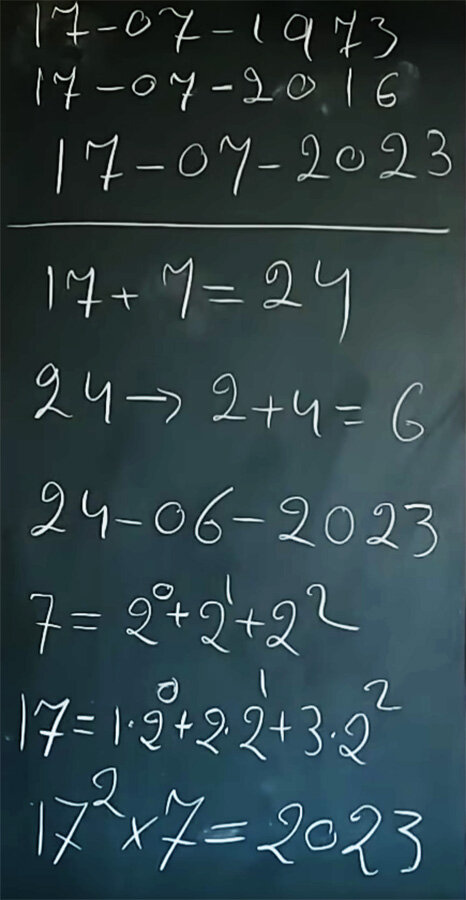 17-07-1973
17-07-2016
17-07-2023
17+7=24
24→2+4=6
24-06-2023
7=2⁰+2¹+2²
17=1·2⁰+2·2¹+3·2²
17²×7=2023